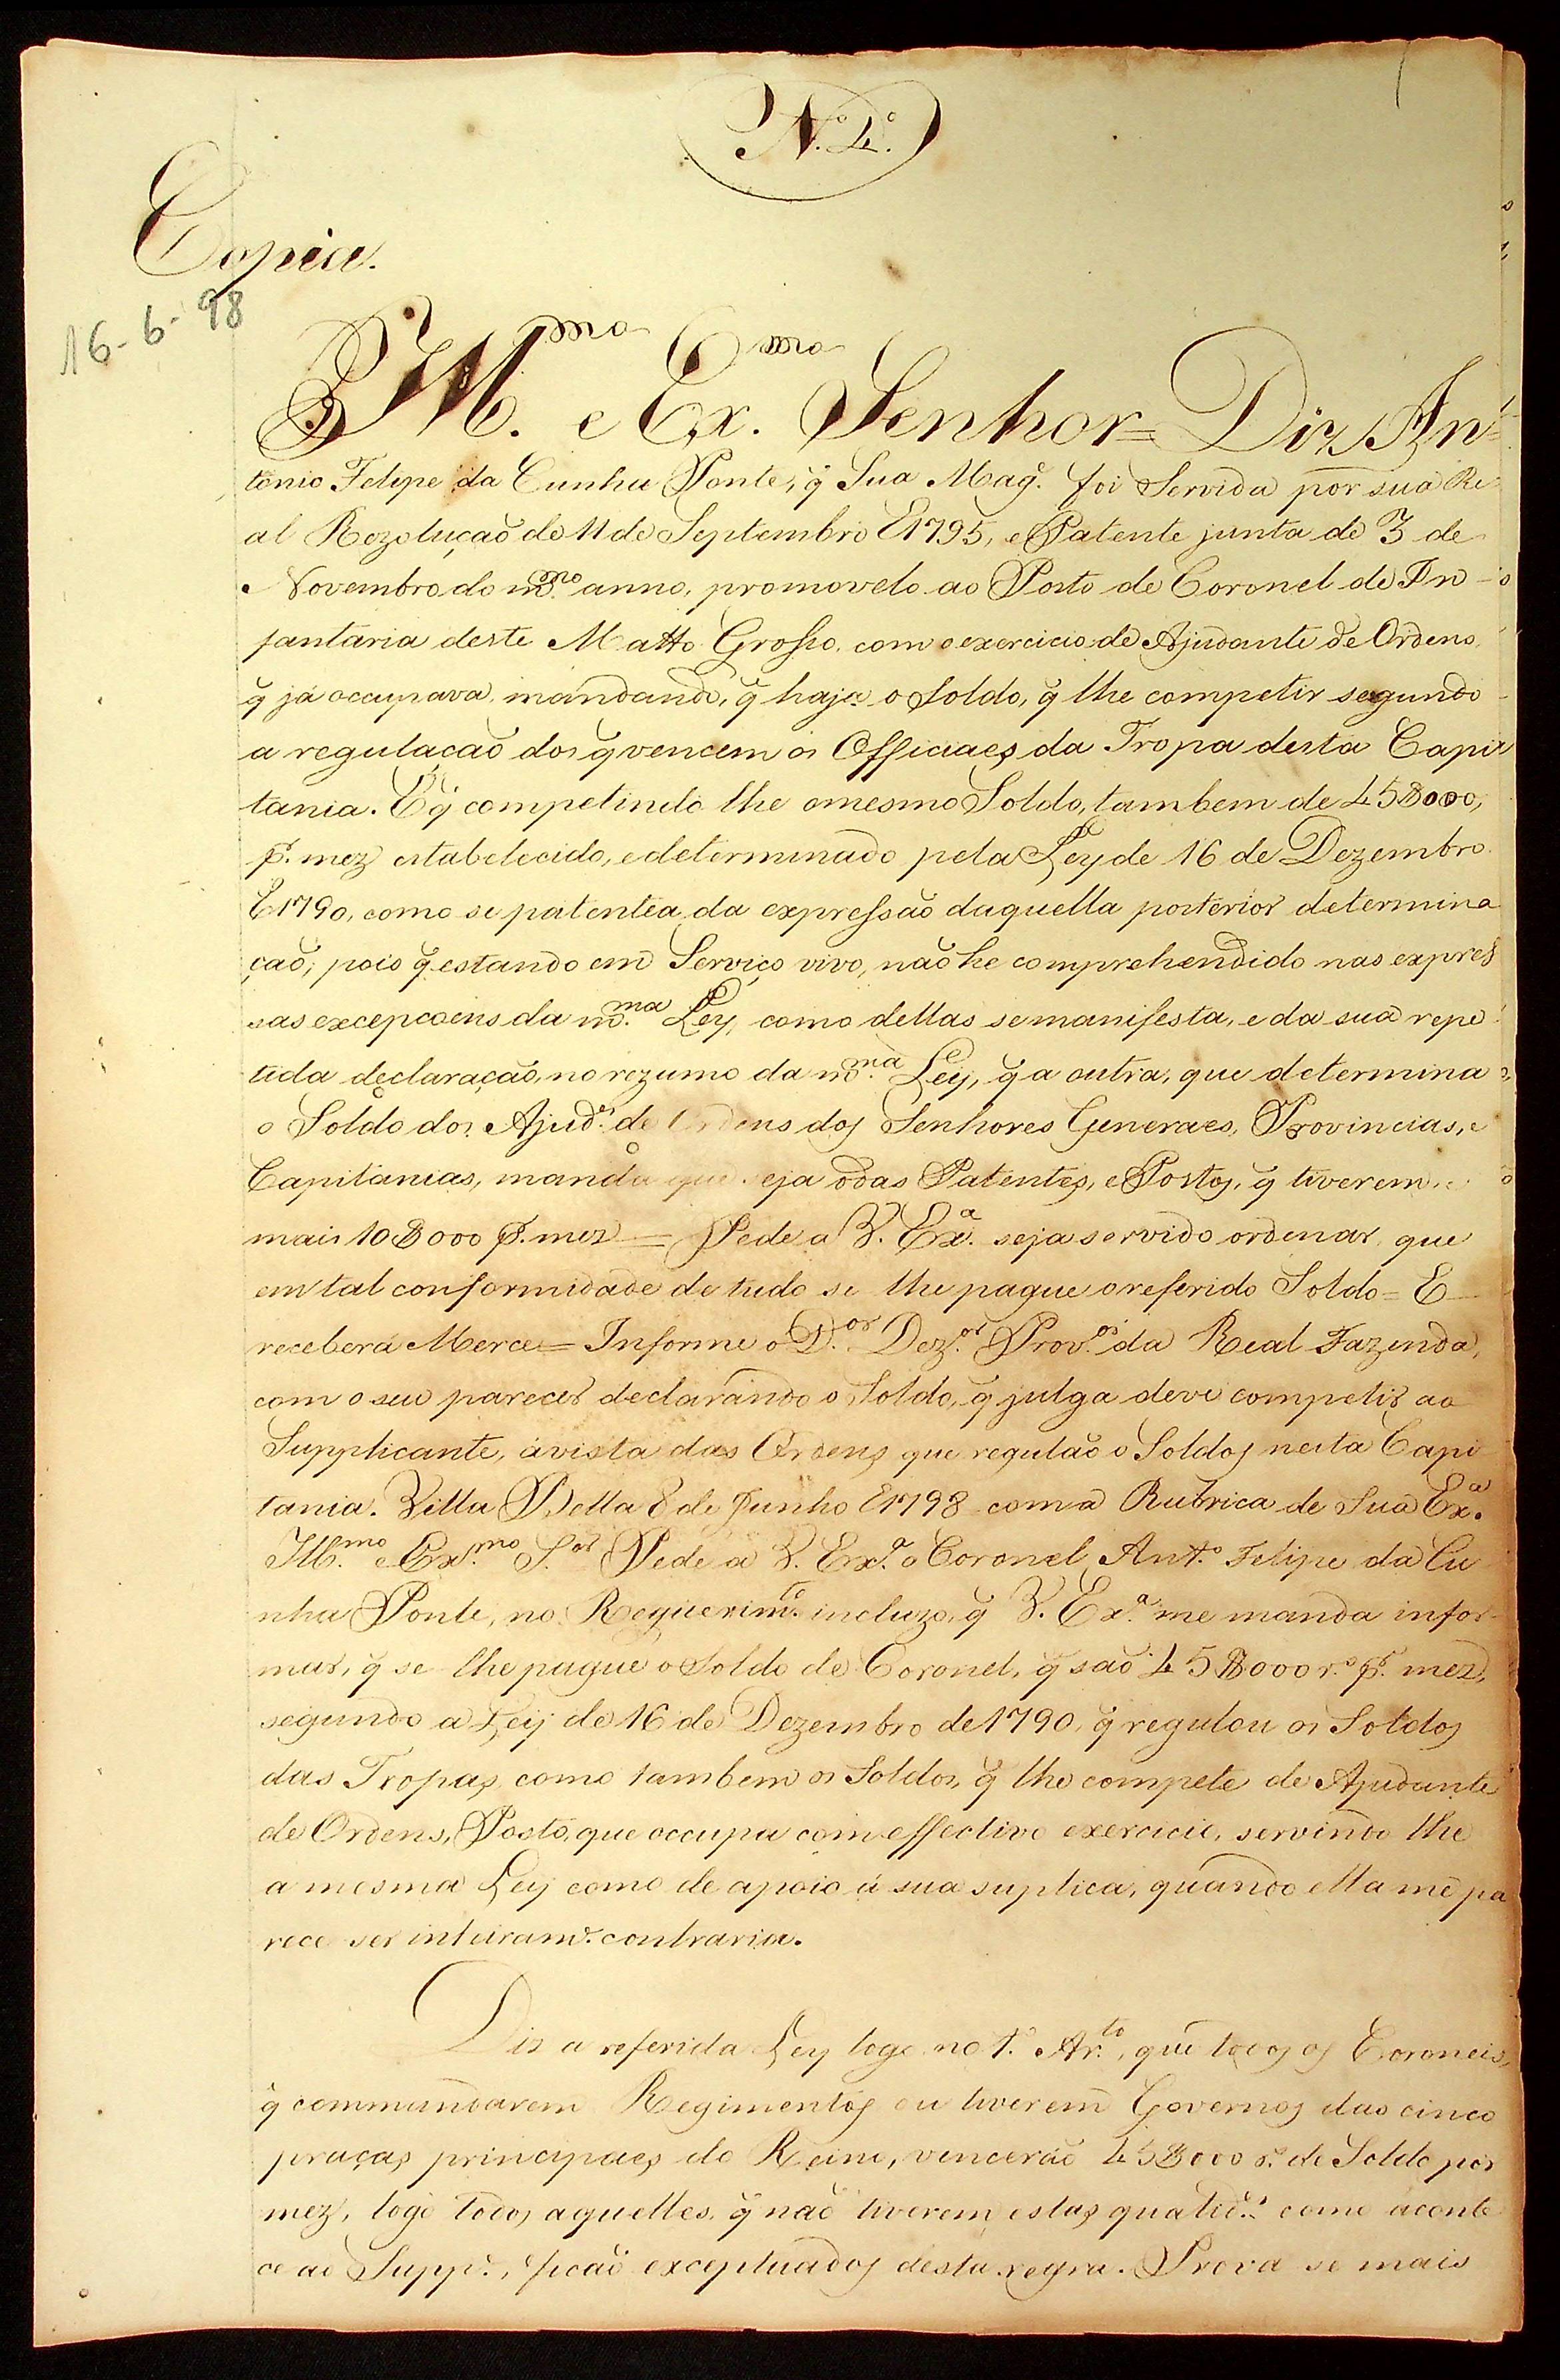 N.º 4.º
Copia.
16-6-98
Ill.mo e Ex.mo Senhor = Diz An=
tonio Felipe da Cunha Ponte, q̃ Sua Mag.e foi Servida por sua Re
al Rezoluçaõ de 11 de Septembro E1795, e Patente junta de 3 de
Novembro do m.mo anno, promovelo ao Posto de Coronel de In
fantaria deste Matto Grosso, com o exercicio de Ajudante de Ordens,
q̃ já occupava, mandando, q̃ haja o Soldo, q̃ lhe competir segundo
a regulaçaõ dos q̃ vencem os Officiaes da Tropa desta Capi
tania. E q̃ competindo lhe o mesmo Soldo, tambem de 45$000,
p.r mez estabelecido, e determinado pela Ley de 16 de Dezembro
E1790, como se patentêa da expressaõ daquella posterior determina
çaõ; pois q̃ estando em Serviço vivo, naõ he comprehendido nas expres
sas excepçoens da m.ma Ley, como dellas se manifesta, e da sua repe
tida declaraçaõ, no rezumo da m.ma Ley, q̃ a outra, que determina
o Soldo dos Ajud.es de Ordens dos Senhores Generaes, Provincias, e
Capitanias, manda que seja o das Patentes, e Postos, q̃ tiverem, e
mais 10$000 p.r mez = Pede a V. Ex.a seja servido ordenar que
em tal conformidade de tudo se lhe pague o referido Soldo = E
receberá Merce = Informe o D.or Dez.or Prov.or da Real Fazenda,
com o seu parecer declarando o Soldo, q̃ julga deve competir ao
Supplicante, á vista das Ordens que regulaõ o Soldos nesta Capi
tania. Villa Bella 8 de Junho E1798 com a Rubrica de Sua Ex.a
Ill.mo e Ex.mo S.or Pede a V. Ex.a o Coronel Ant.o Felipe da Cu
nha Ponte, no Requerim.to incluzo, q̃ V. Ex.a me manda infor
mar, q̃ se lhe pague o Soldo de Coronel, q̃ saõ 45$000 r.s p.r mez,
segundo a Ley de 16 de Dezembro de 1790, q̃ regulou os Soldos
das Tropas, como tambem os Soldos, q̃ lhe compete de Ajudante
de Ordens, Posto, que occupa com effectivo exercicio, servindo lhe
a mesma Ley como de apoio á sua suplica, quando ella me pa
rece ser inteiram.e contraria.
Diz a referida Ley logo no 1.º Ar.to, que todos os Coroneis,
q̃ commandarem Regimentos ou tiverem Governos das cinco
praças principaes do Reino, venceráõ 45$000 r.s de Soldo por
mez, logo todos aquelles, q̃ naõ tiverem estas qualid.es como aconte
ce ao Supp.e, ficaõ exceptuados desta regra. Prova se mais